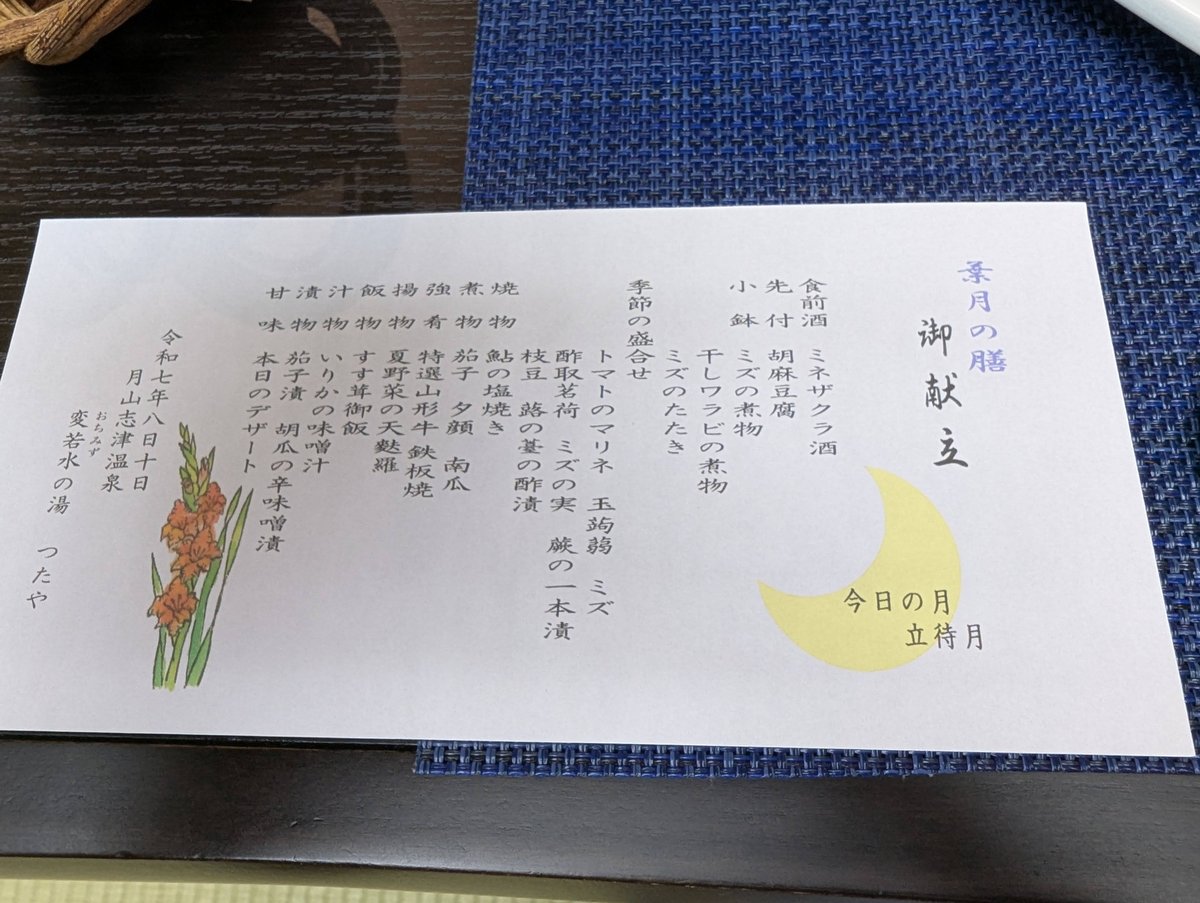 葉月の膳
御献立
今日の月
立待月
食前酒 ミネザクラ酒
先付 胡麻豆腐
小鉢 ミズの煮物
干しワラビの煮物
ミズのたたき
季節の盛合せ
トマトのマリネ 玉蒟蒻 ミズ
酢取茗荷 ミズの実 蕨の一本漬
枝豆 蕗の薹の酢漬
焼物 鮎の塩焼き
煮物 茄子 夕顔 南瓜
強肴 特選山形牛 鉄板焼
揚物 夏野菜の天麩羅
飯物 すす茸御飯
汁物 いりかの味噌汁
漬物 茄子漬 胡瓜の辛味噌漬
甘味 本日のデザート
令和七年八日十日
月山志津温泉
おちみず
変若水の湯 つたや